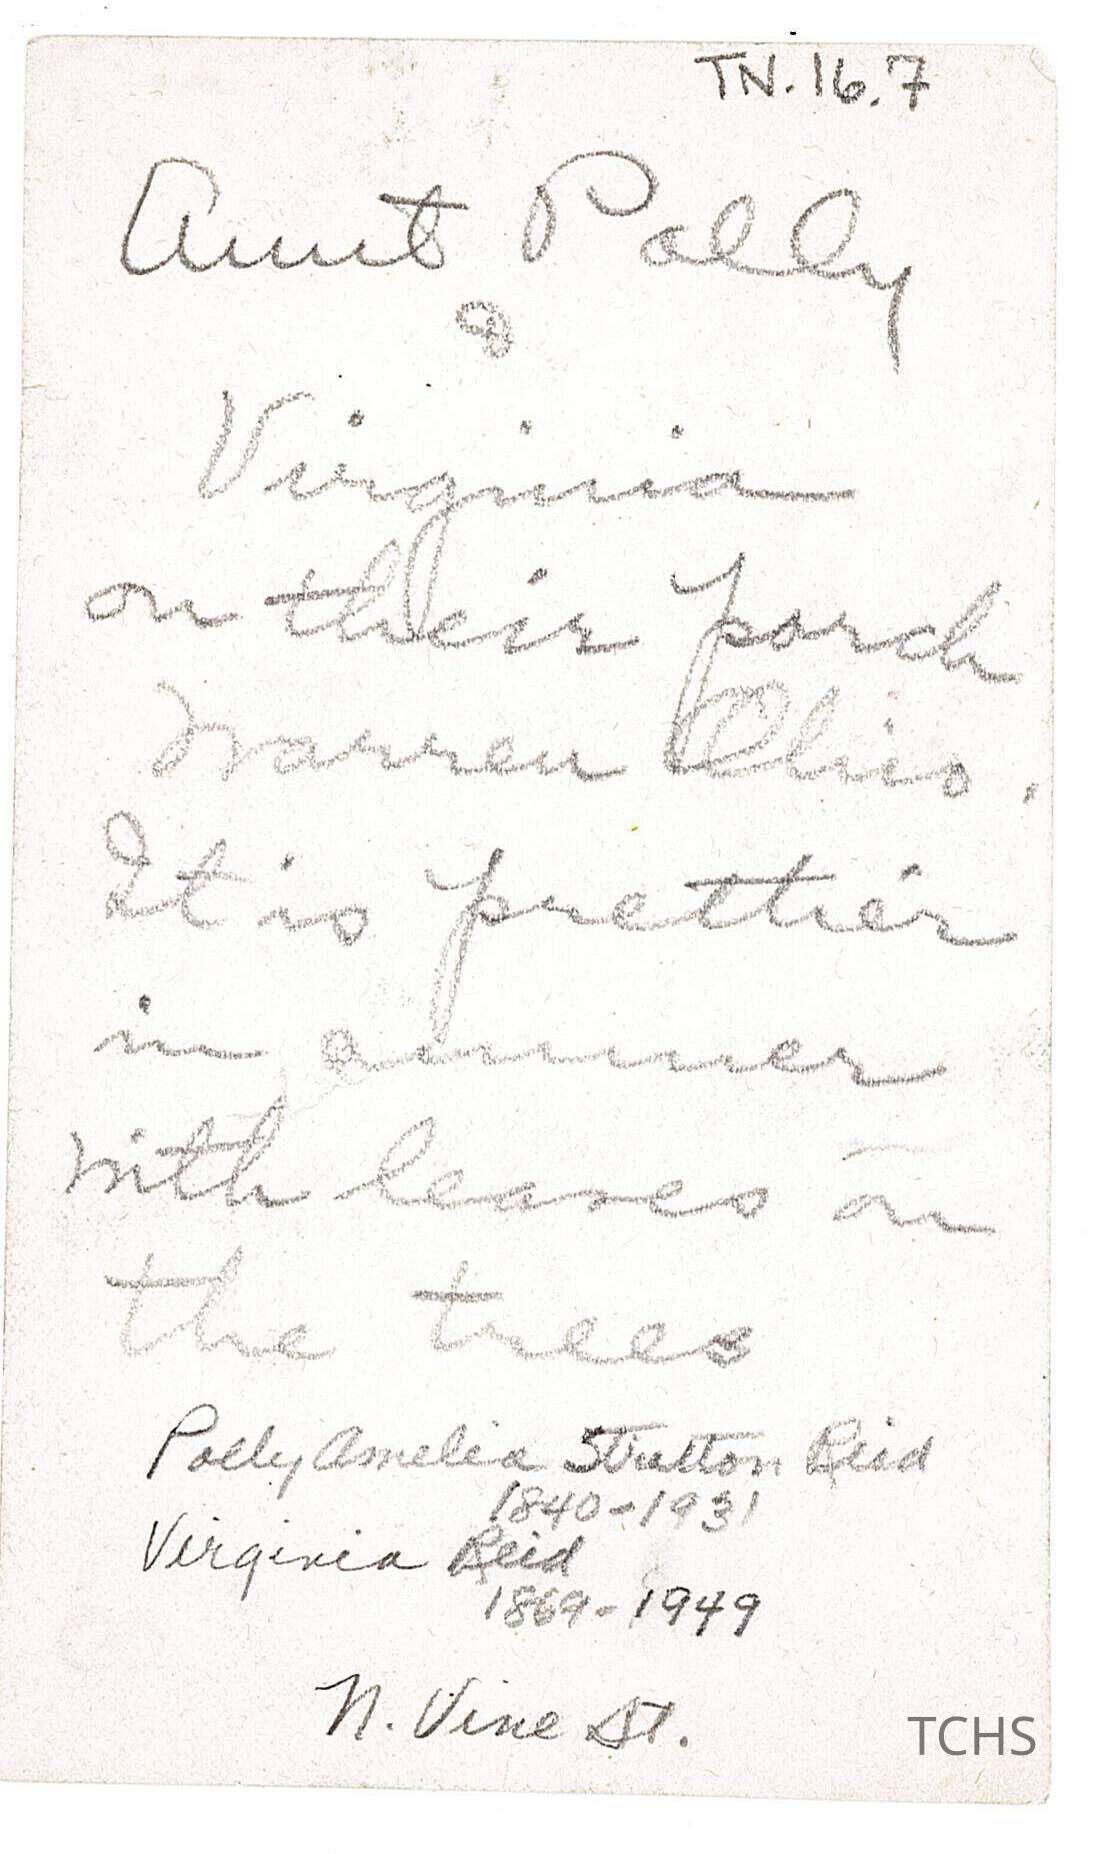 TN.16.7
Aunt Polly
&
Virginia
on their porch
Warren Ohio.
It is prettier
in summer
with leaves on
the trees
Polly Amelia Stratton Reid
1840-1931
Virginia Reid
1869-1949
N. Vine St.
TCHS